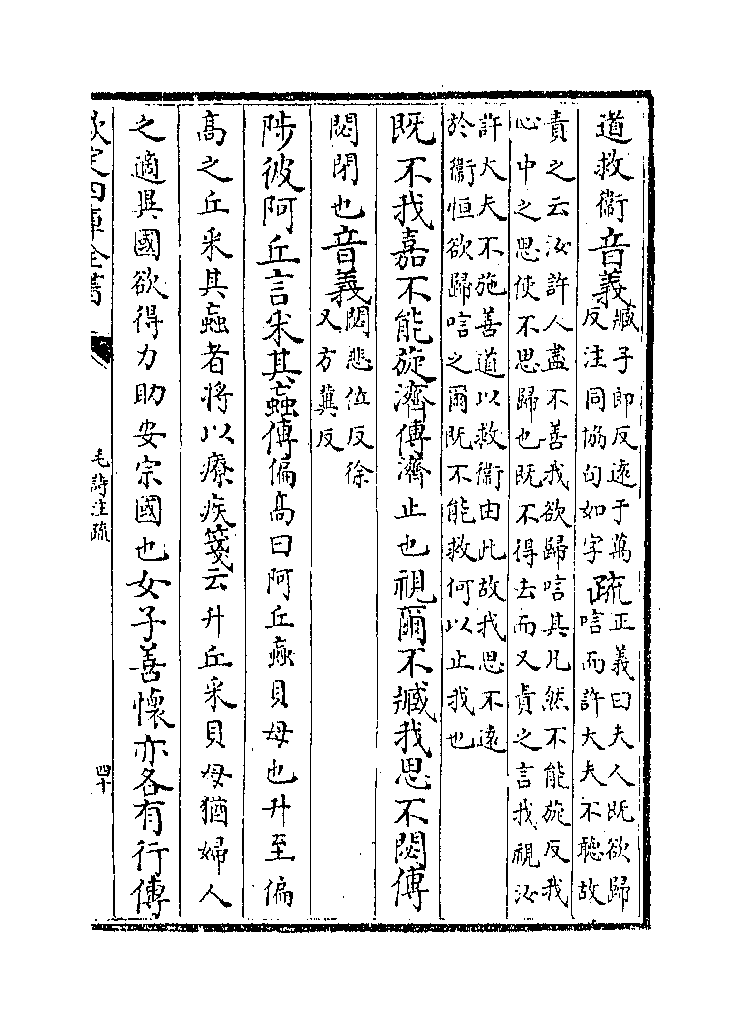 道救衞音義臧子即反遠于萬
反注同協句如字疏正義曰夫人既欲歸
唁而許大夫不聽故
責之云汝許人盡不善我欲歸唁其兄然不能旋反我
心中之思使不思歸也既不得去而又責之言我視汝
許大夫不施善道以救衞由此故我思不遠
於衞恒欲歸唁之爾既不能救何以止我也
既不我嘉不能旋濟傳濟止也視爾不臧我思不閟傳
閟閉也音義閟悲位反徐
又方冀反
陟彼阿丘言采其蝱傳偏高曰阿丘蝱貝母也升至偏
高之丘采其蝱者將以療疾箋云升丘采貝母猶婦人
之適異國欲得力助安宗國也女子善懷亦各有行傳
欽定四庫全書
毛詩注疏
四十